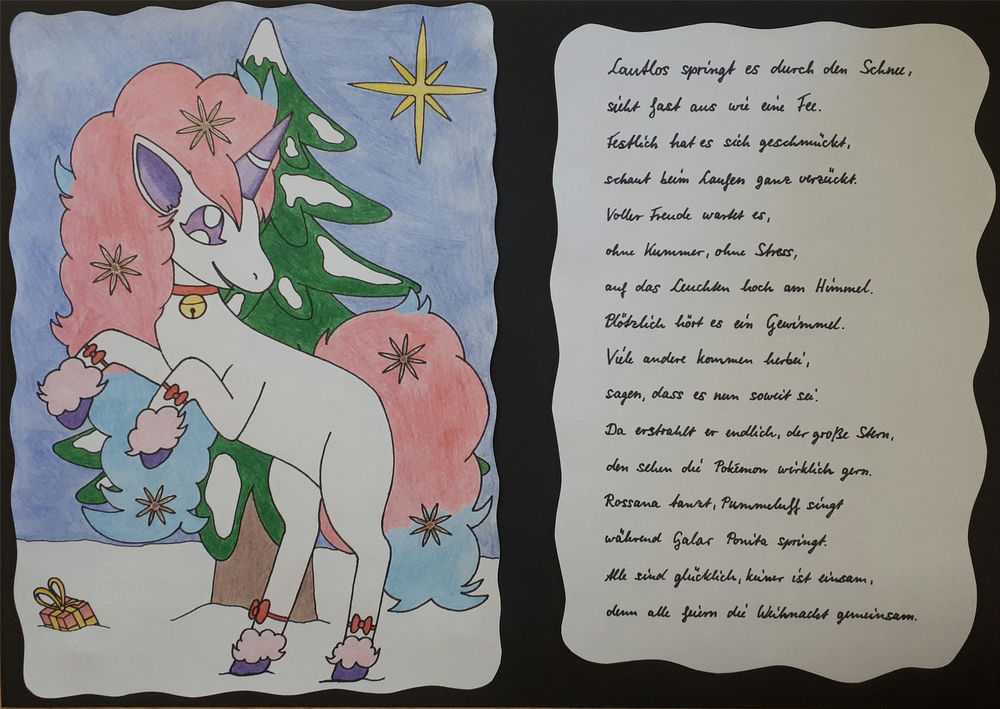 Lautlos springt es durch den Schnee,
sieht fast aus wie eine Fee.
Festlich hat es sich geschmückt,
schaut beim Laufen ganz verzückt.
Voller Freude wartet es,
ohne Kummer, ohne Stress,
auf das Leuchten hoch am Himmel.
Plötzlich hört es ein Gewimmel.
Viele andere kommen herbei,
sagen, dass es nun soweit sei.
Da erstrahlt er endlich, der große Stern,
den sehen die Pokémon wirklich gern.
Rossana tanzt, Pummeluff singt
während Galar Ponita springt.
Alle sind glücklich, keiner ist einsam,
denn alle feiern die Weihnacht gemeinsam.